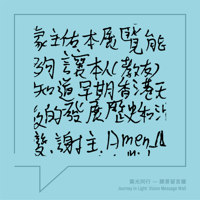 蒙主佑本展覧能
夠讓本人(教友)
知道早期香港天
的發展歷史和
謝主. Amen
與光同行 — 觀眾留言牆
Journey in Light: Visitor Message Wall